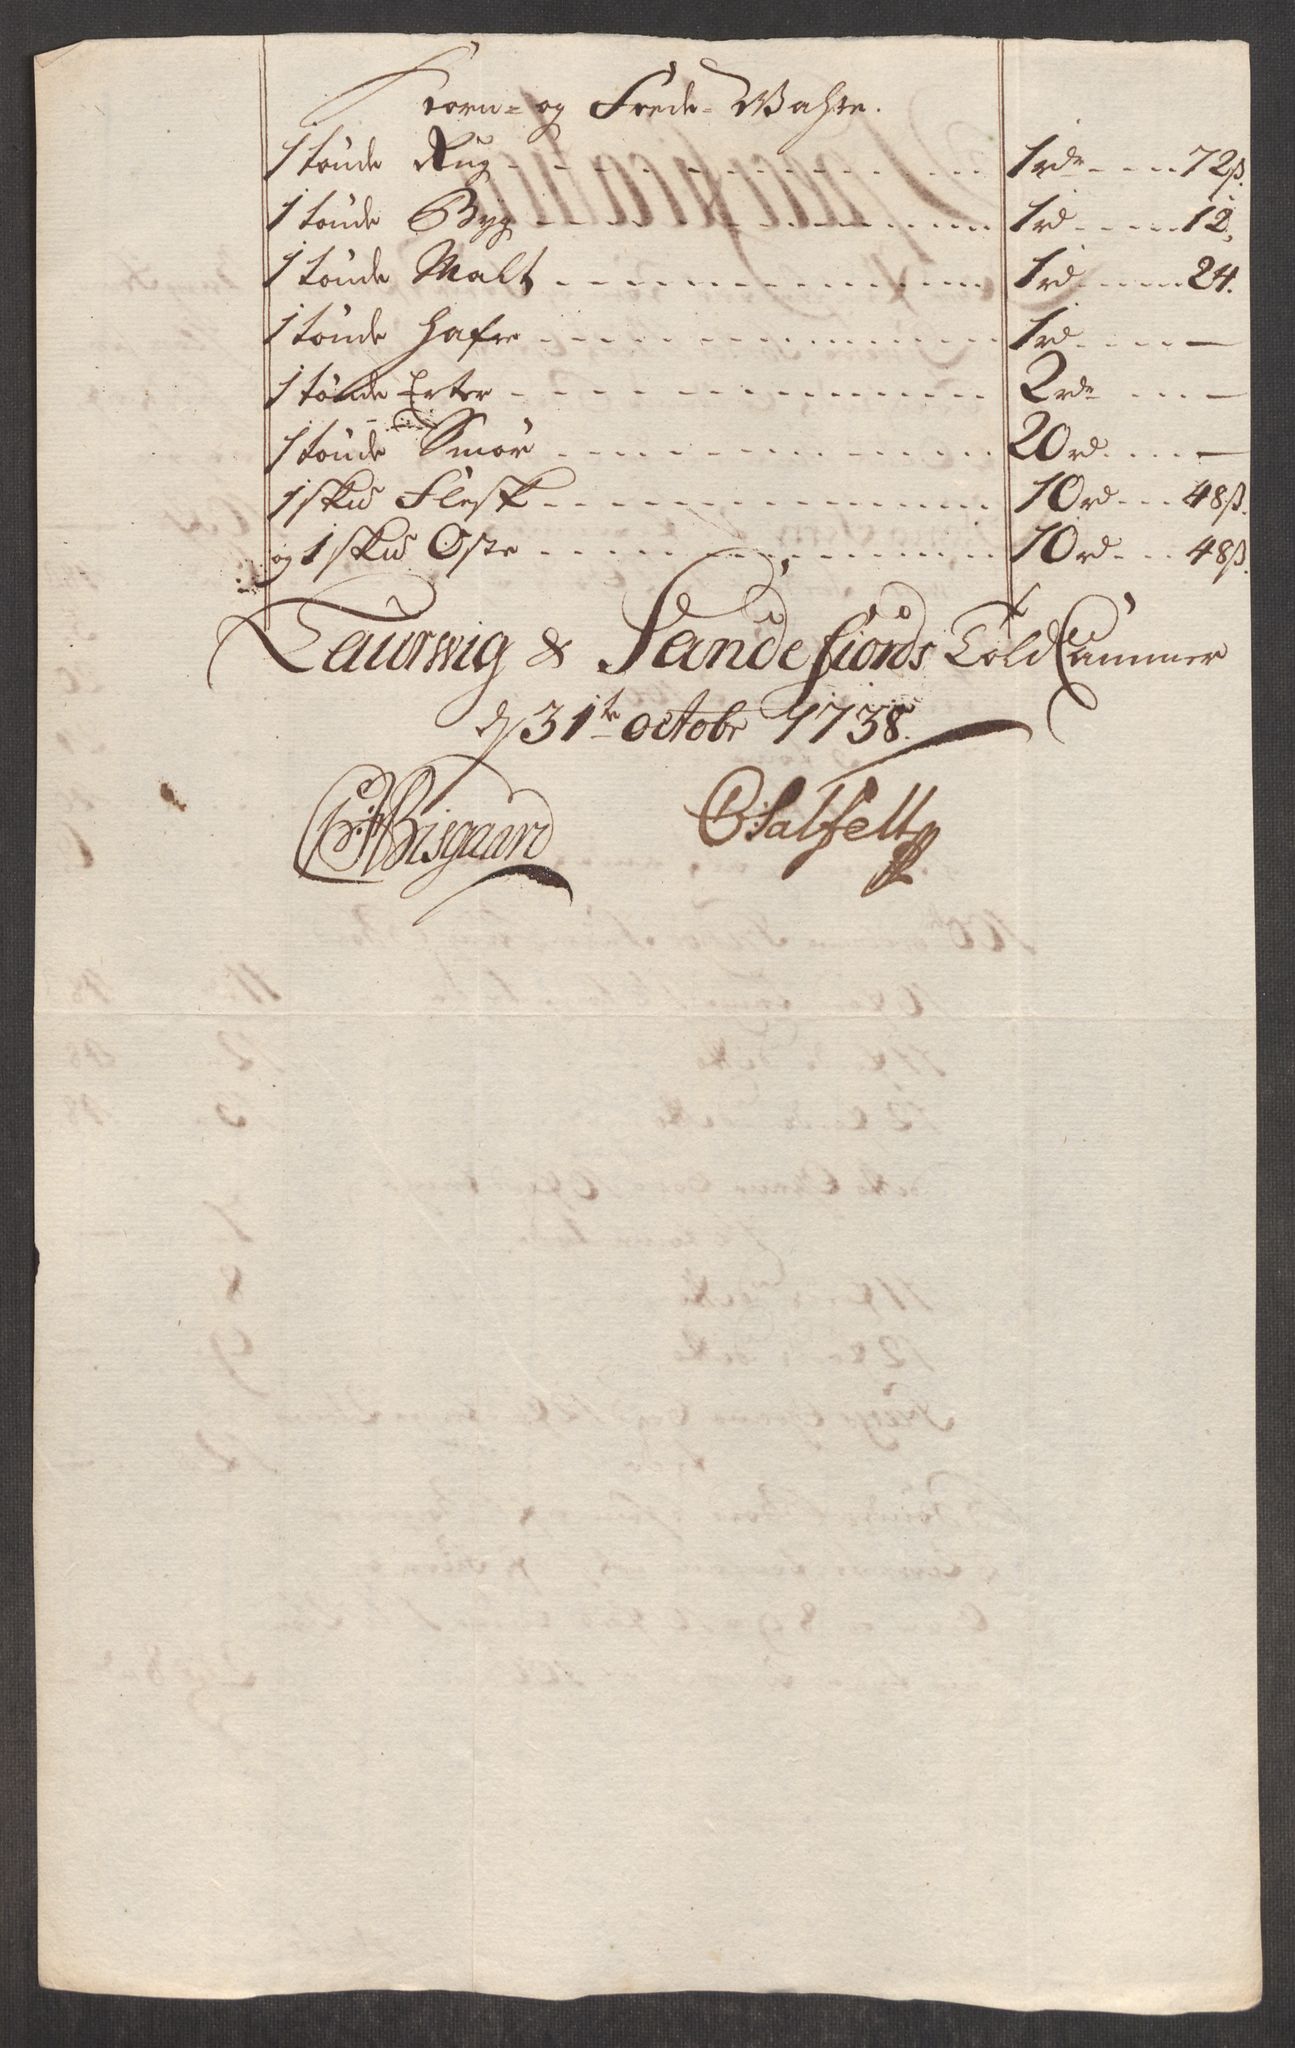 Korn- og Fede- Wahre.
1 tönde Rug - - - 1 rdr - - - 72 ß.
1 tönde Byg - - - 1 rd - - - 12,
1 tönde Malt - - - 1 rd - - - 24.
1 tönde Hafre - - - 1 rd - - - —
1 tönde Erter - - - 2 rdr - - - —
1 tönde Smör - - - 20 rd - - - —
1 skud Flesk - - - 10 rd - - - 48 ß.
og 1 skud Oste - - - 10 rd - - - 48 ß.
Laurwig & Sandefiords Told Cammer
d 31te octobr 1738.
Bisgaard Salfelt